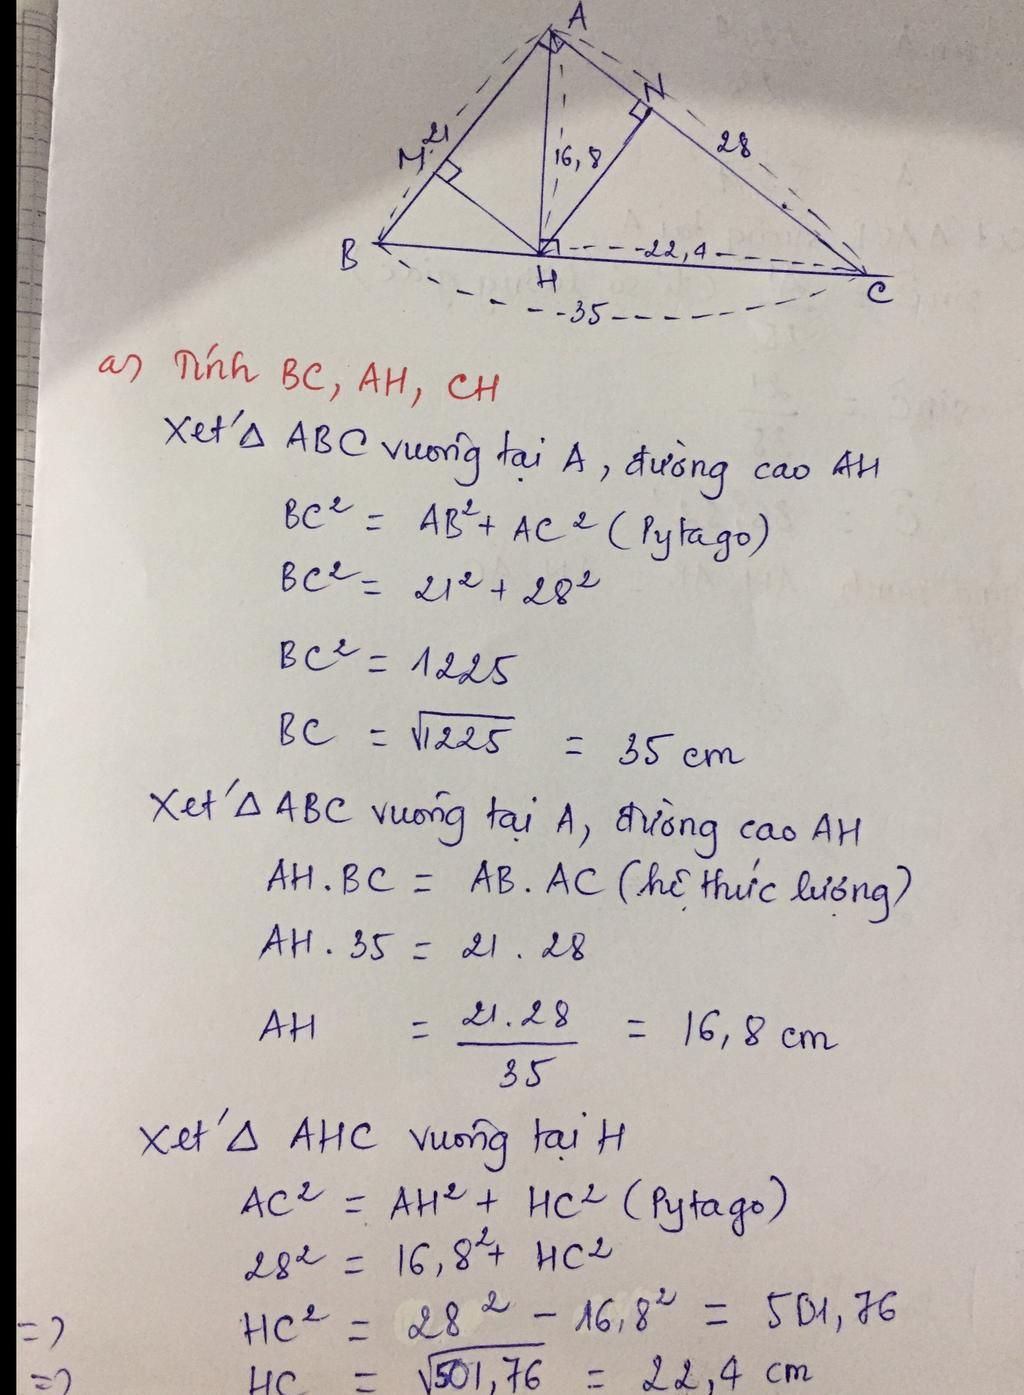 A
N
M
21
28
16,8
B
22,4
H
C
35
a) Tính BC, AH, CH
Xét Δ ABC vuông tại A, đường cao AH
BC² = AB² + AC² (Pytago)
BC² = 21² + 28²
BC² = 1225
BC = √1225 = 35 cm
Xét Δ ABC vuông tại A, đường cao AH
AH.BC = AB.AC (hệ thức lượng)
AH.35 = 21.28
AH = 21.28/35 = 16,8 cm
Xét Δ AHC vuông tại H
AC² = AH² + HC² (Pytago)
28² = 16,8² + HC²
=> HC² = 28² - 16,8² = 501,76
=> HC = √501,76 = 22,4 cm